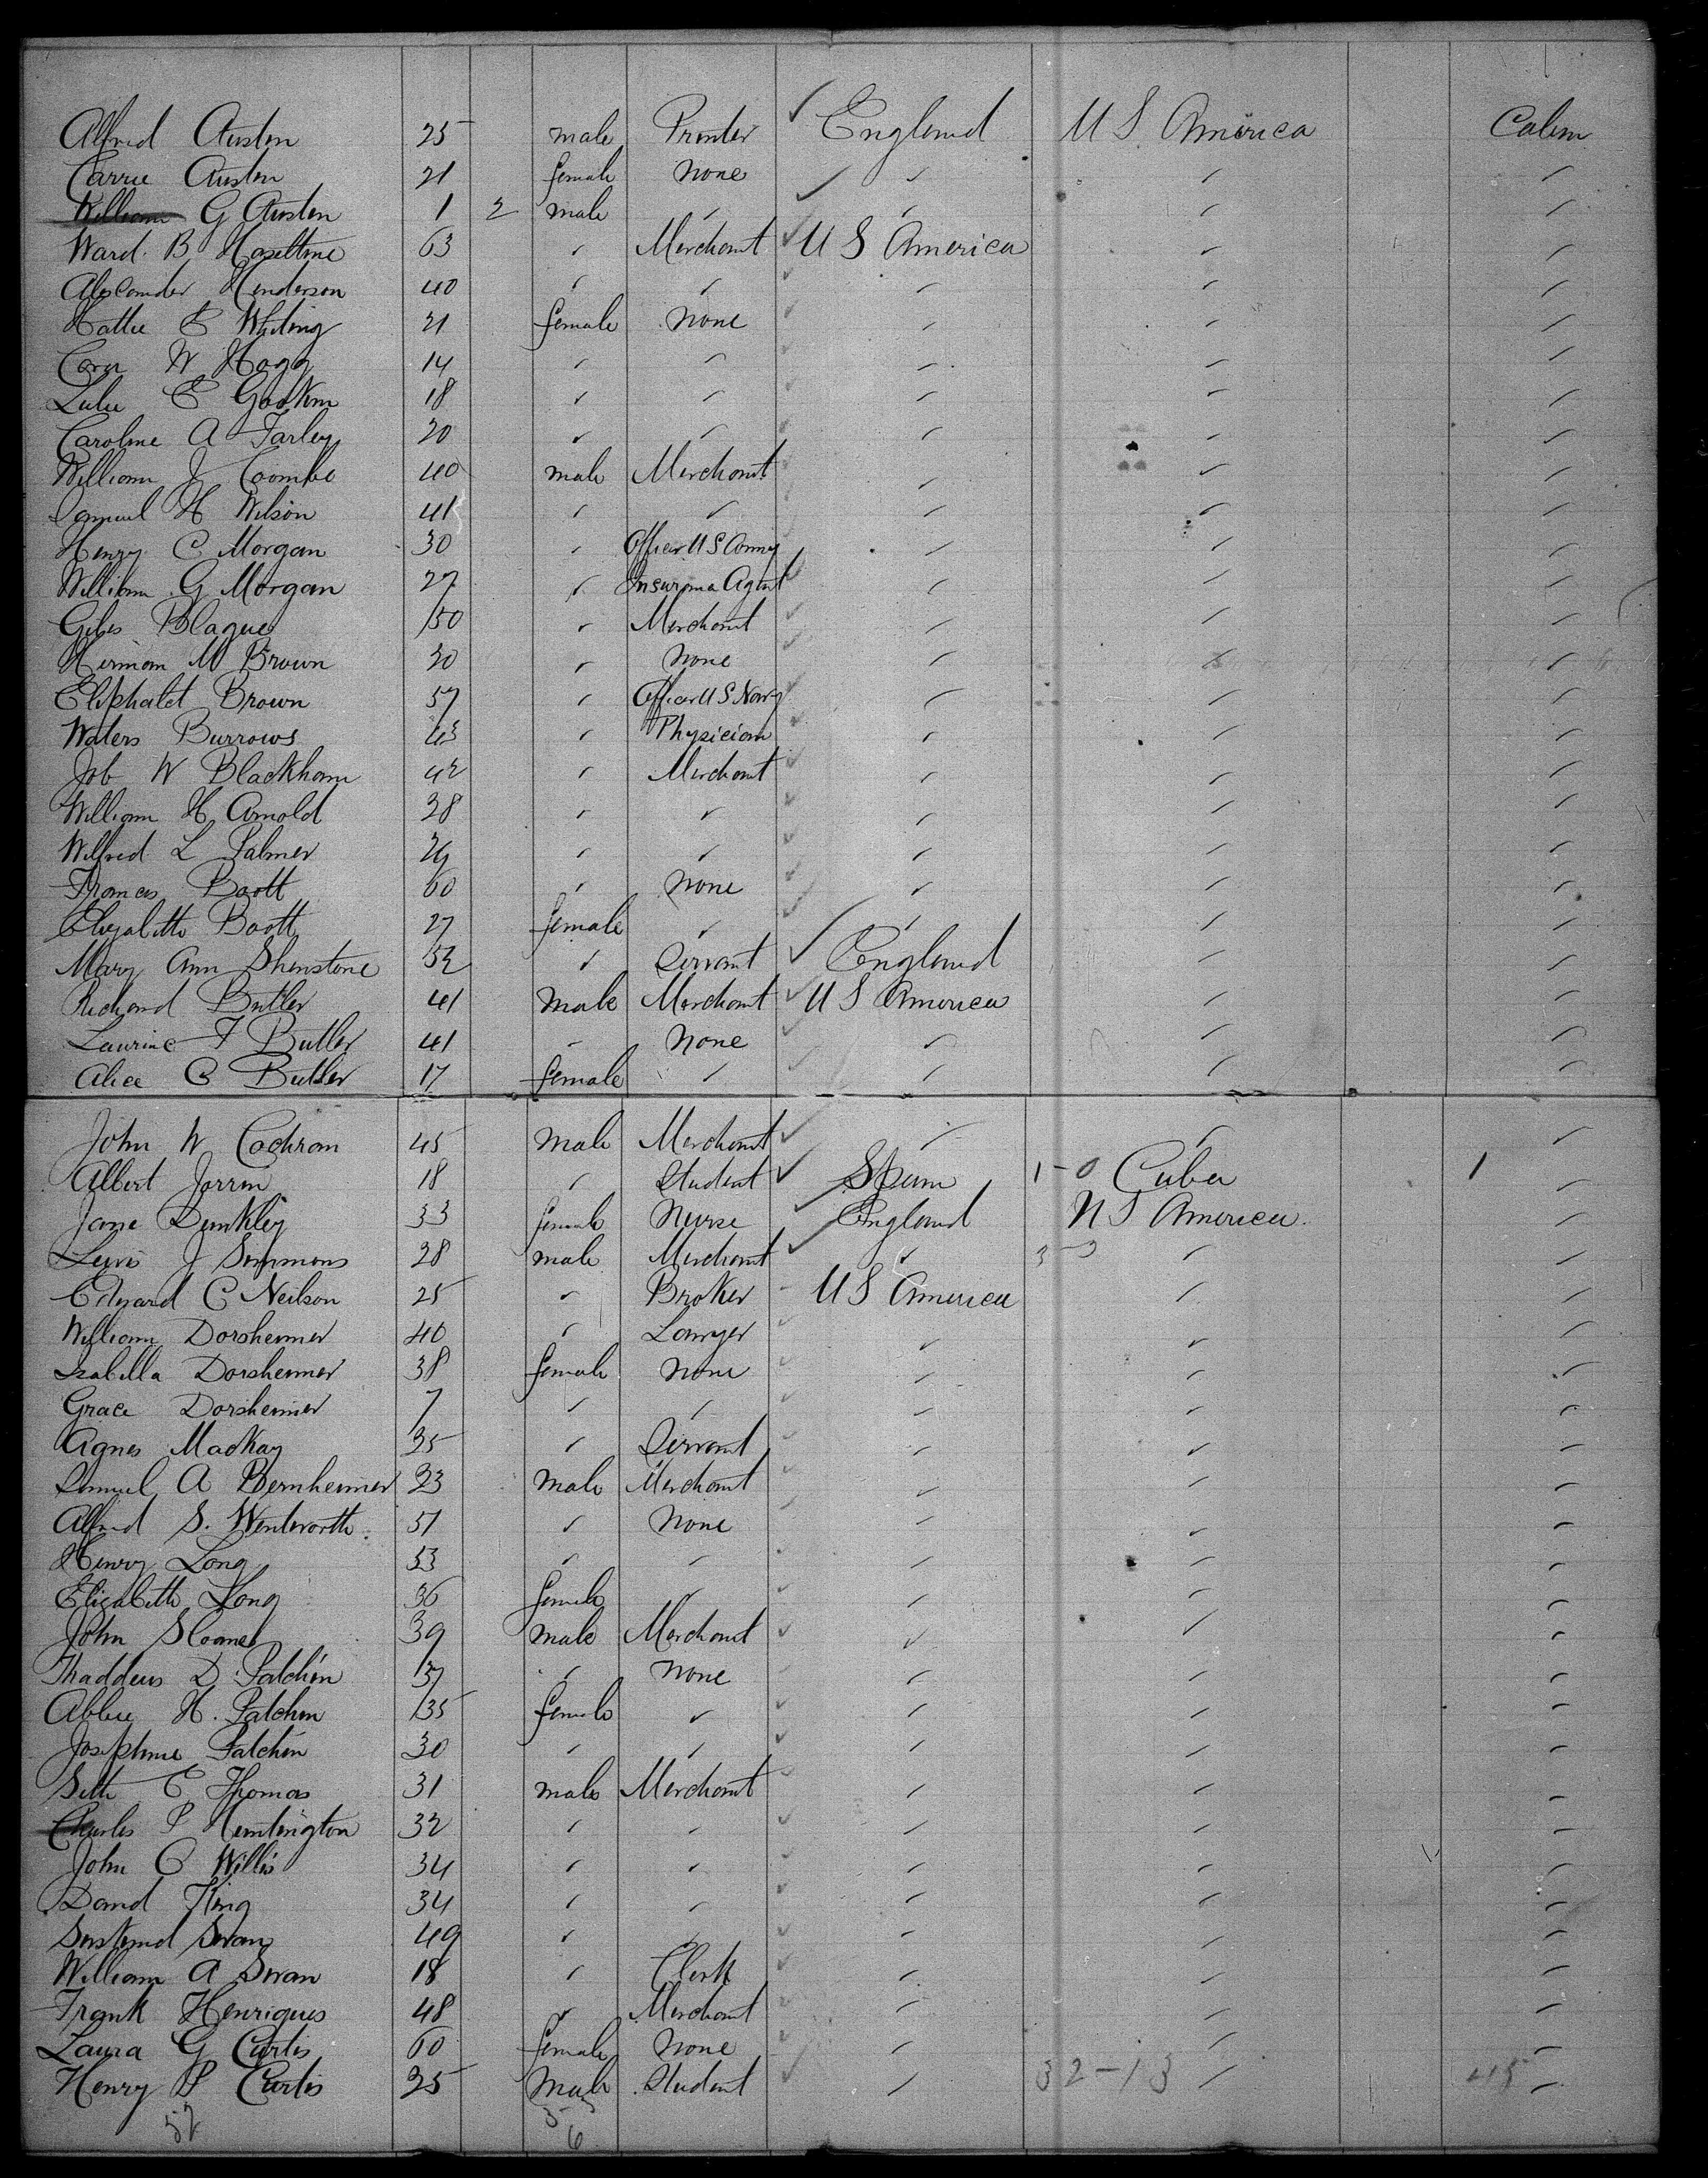 Alfred Austen 25 male Printer ✓ England U S America Cabin
Carrie Austen 21 female None ✓ ✓ ✓
William G Austen 1 2 male ✓ ✓ ✓ ✓ ✓
Ward B Hazeltine 63 ✓ Merchant ✓ U S America ✓ ✓
Alexander Henderson 40 ✓ ✓ ✓ ✓ ✓ ✓
Hattie E Whiting 21 female None ✓ ✓ ✓ ✓
Cora W Hogg 14 ✓ ✓ ✓ ✓ ✓ ✓
Lulu E Gookin 18 ✓ ✓ ✓ ✓ ✓ ✓
Caroline A Farley 20 ✓ ✓ ✓ ✓ ✓ ✓
William J Coombe 40 male Merchant ✓ ✓ ✓ ✓
Samuel H Wilson 41 ✓ ✓ ✓ ✓ ✓ ✓
Henry C Morgan 30 ✓ Officer U S Army ✓ ✓ ✓ ✓
William G Morgan 27 ✓ Insurance Agent ✓ ✓ ✓ ✓
Giles Blague 50 ✓ Merchant ✓ ✓ ✓ ✓
Herman M Brown 20 ✓ None ✓ ✓ ✓ ✓
Eliphalet Brown 57 ✓ Officer U S Navy ✓ ✓ ✓ ✓
Waters Burrows 43 ✓ Physician ✓ ✓ ✓ ✓
Job W Blackham 42 ✓ Merchant ✓ ✓ ✓ ✓
William H Arnold 28 ✓ ✓ ✓ ✓ ✓ ✓
Wilfred L Palmer 29 ✓ ✓ ✓ ✓ ✓ ✓
Francis Boott 60 ✓ None ✓ ✓ ✓ ✓
Elizabeth Boott 27 female ✓ ✓ ✓ ✓ ✓
Mary Ann Shenstone 52 ✓ Servant ✓ England ✓ ✓
Richard Butler 41 male Merchant ✓ U S America ✓ ✓
F Butler 41 ✓ None ✓ ✓ ✓ ✓
Alice B Butler 17 female ✓ ✓ ✓ ✓ ✓
John W Cochran 45 male Merchant ✓ ✓ ✓ ✓
Albert Jorrin 18 ✓ Student ✓ Spain 1-0 Cuba 1 ✓
Jane Dunkley 33 female Nurse ✓ England U S America ✓
Lewis J Simmons 28 male Merchant ✓ ✓ ✓ ✓
Edward C Neilson 25 ✓ Broker U S America ✓ ✓
William Dorsheimer 40 ✓ Lawyer ✓ ✓ ✓ ✓
Isabella Dorsheimer 38 female None ✓ ✓ ✓ ✓
Grace Dorsheimer 7 ✓ ✓ ✓ ✓ ✓ ✓
Agnes MacKay 25 ✓ Servant ✓ ✓ ✓ ✓
Samuel A Bernheimer 23 male Merchant ✓ ✓ ✓ ✓
Alfred S. Wentworth 51 ✓ None ✓ ✓ ✓ ✓
Henry Long 53 ✓ ✓ ✓ ✓ ✓
Elizabeth Long 36 female ✓ ✓ ✓ ✓ ✓
John Sloane 39 male Merchant ✓ ✓ ✓ ✓
Thaddeus D. Patchin 37 ✓ None ✓ ✓ ✓ ✓
Abbie H. Patchin 35 female ✓ ✓ ✓ ✓ ✓
Josephine Patchin 30 ✓ ✓ ✓ ✓ ✓ ✓
Seth E Thomas 31 male Merchant ✓ ✓ ✓ ✓
Charles P Huntington 32 ✓ ✓ ✓ ✓ ✓ ✓
John C Willis 34 ✓ ✓ ✓ ✓ ✓ ✓
David King 34 ✓ ✓ ✓ ✓ ✓ ✓
Swan 49 ✓ ✓ ✓ ✓ ✓ ✓
William A Swan 18 ✓ Clerk ✓ ✓ ✓ ✓
Frank Henriques 48 ✓ Merchant ✓ ✓ ✓ ✓
Laura G Curtis 60 female None ✓ ✓ ✓ ✓
Henry P Curtis 25 male Student ✓ ✓ 32-13 ✓ 45 ✓
52
6